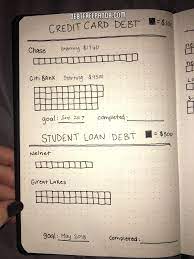 DEBTFREEPANDA.COM
CREDIT CARD DEBT = $100
Chase Starting $1760
Citi Bank Starting
goal: completed:
STUDENT LOAN DEBT = $500
Nelnet
Great Lakes
goal: May 2018 completed: